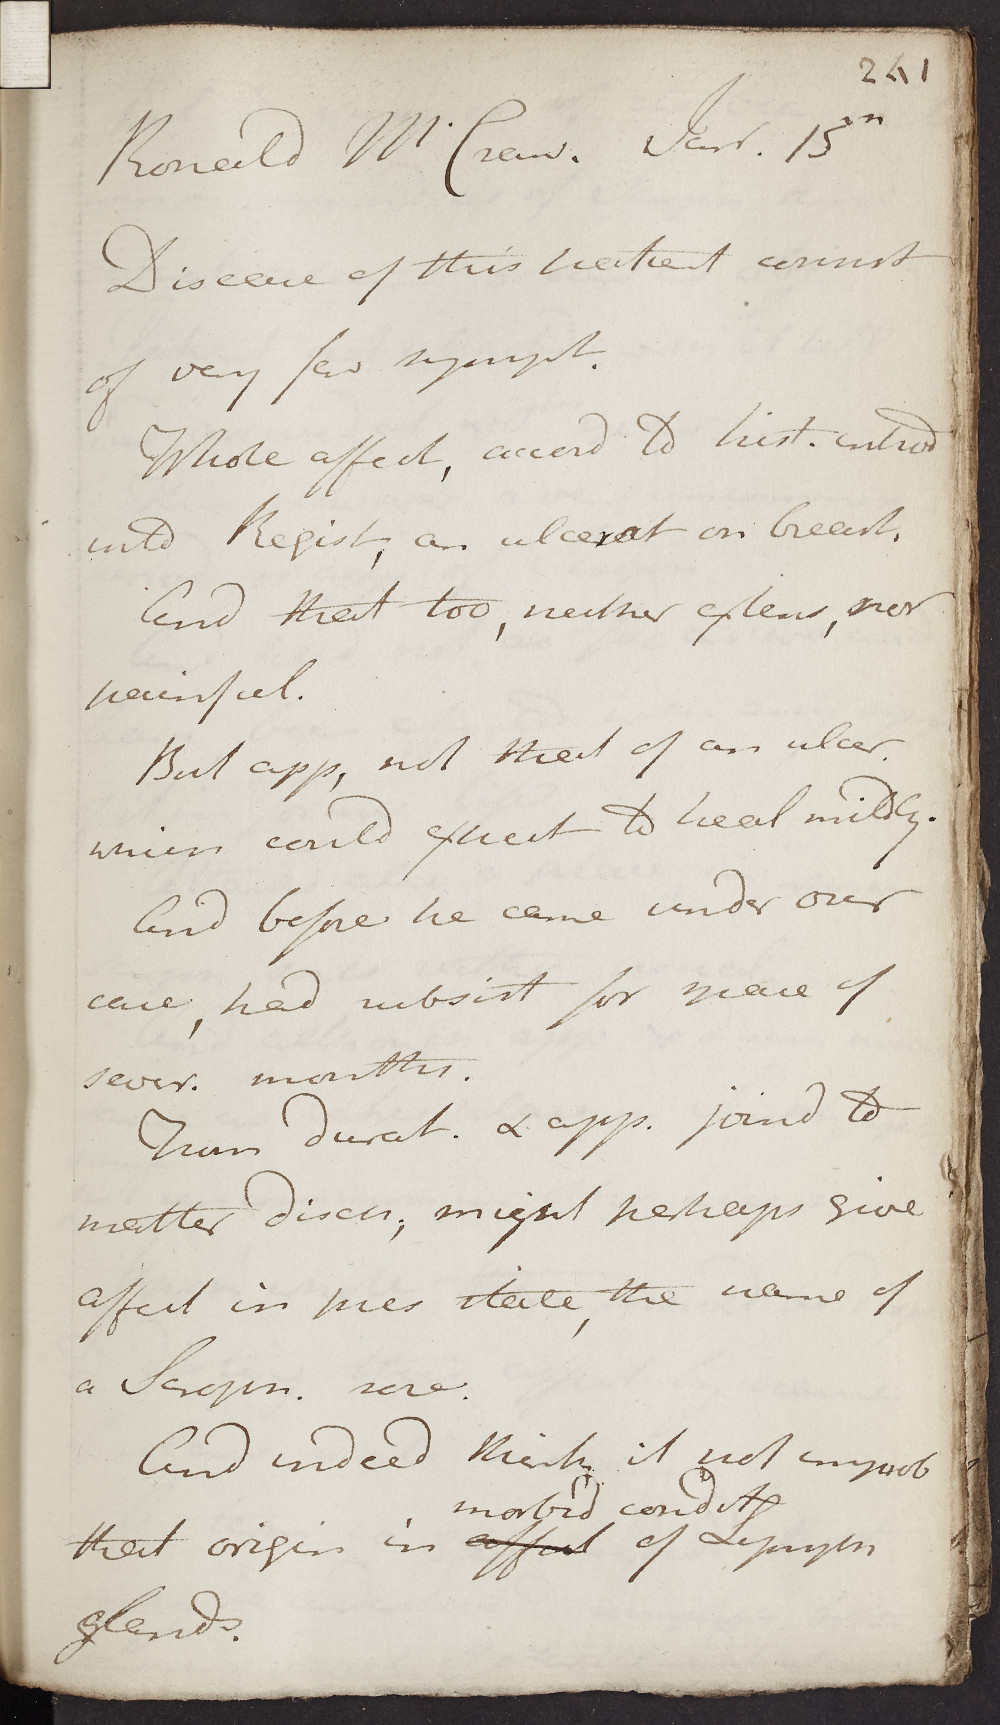 241
Ronald Mc. Craw. Janr. 15th
Disease of this patient consist
of very few sympt.
Whole affect, accord to hist. introd
into Regist, an ulcerat on breast.
And that too, neither extens, nor
painful.
But app, not that of an ulcer
which could expect to heal mildly.
And before he came under our
care, had subsist for space of
sever. months.
From durat. & app. joind to
matter disch, might perhaps give
affect in pres state, the name of
a Scroph. sore.
And indeed think it not improb
that origin in affect morbid condit of Lymph
glands.